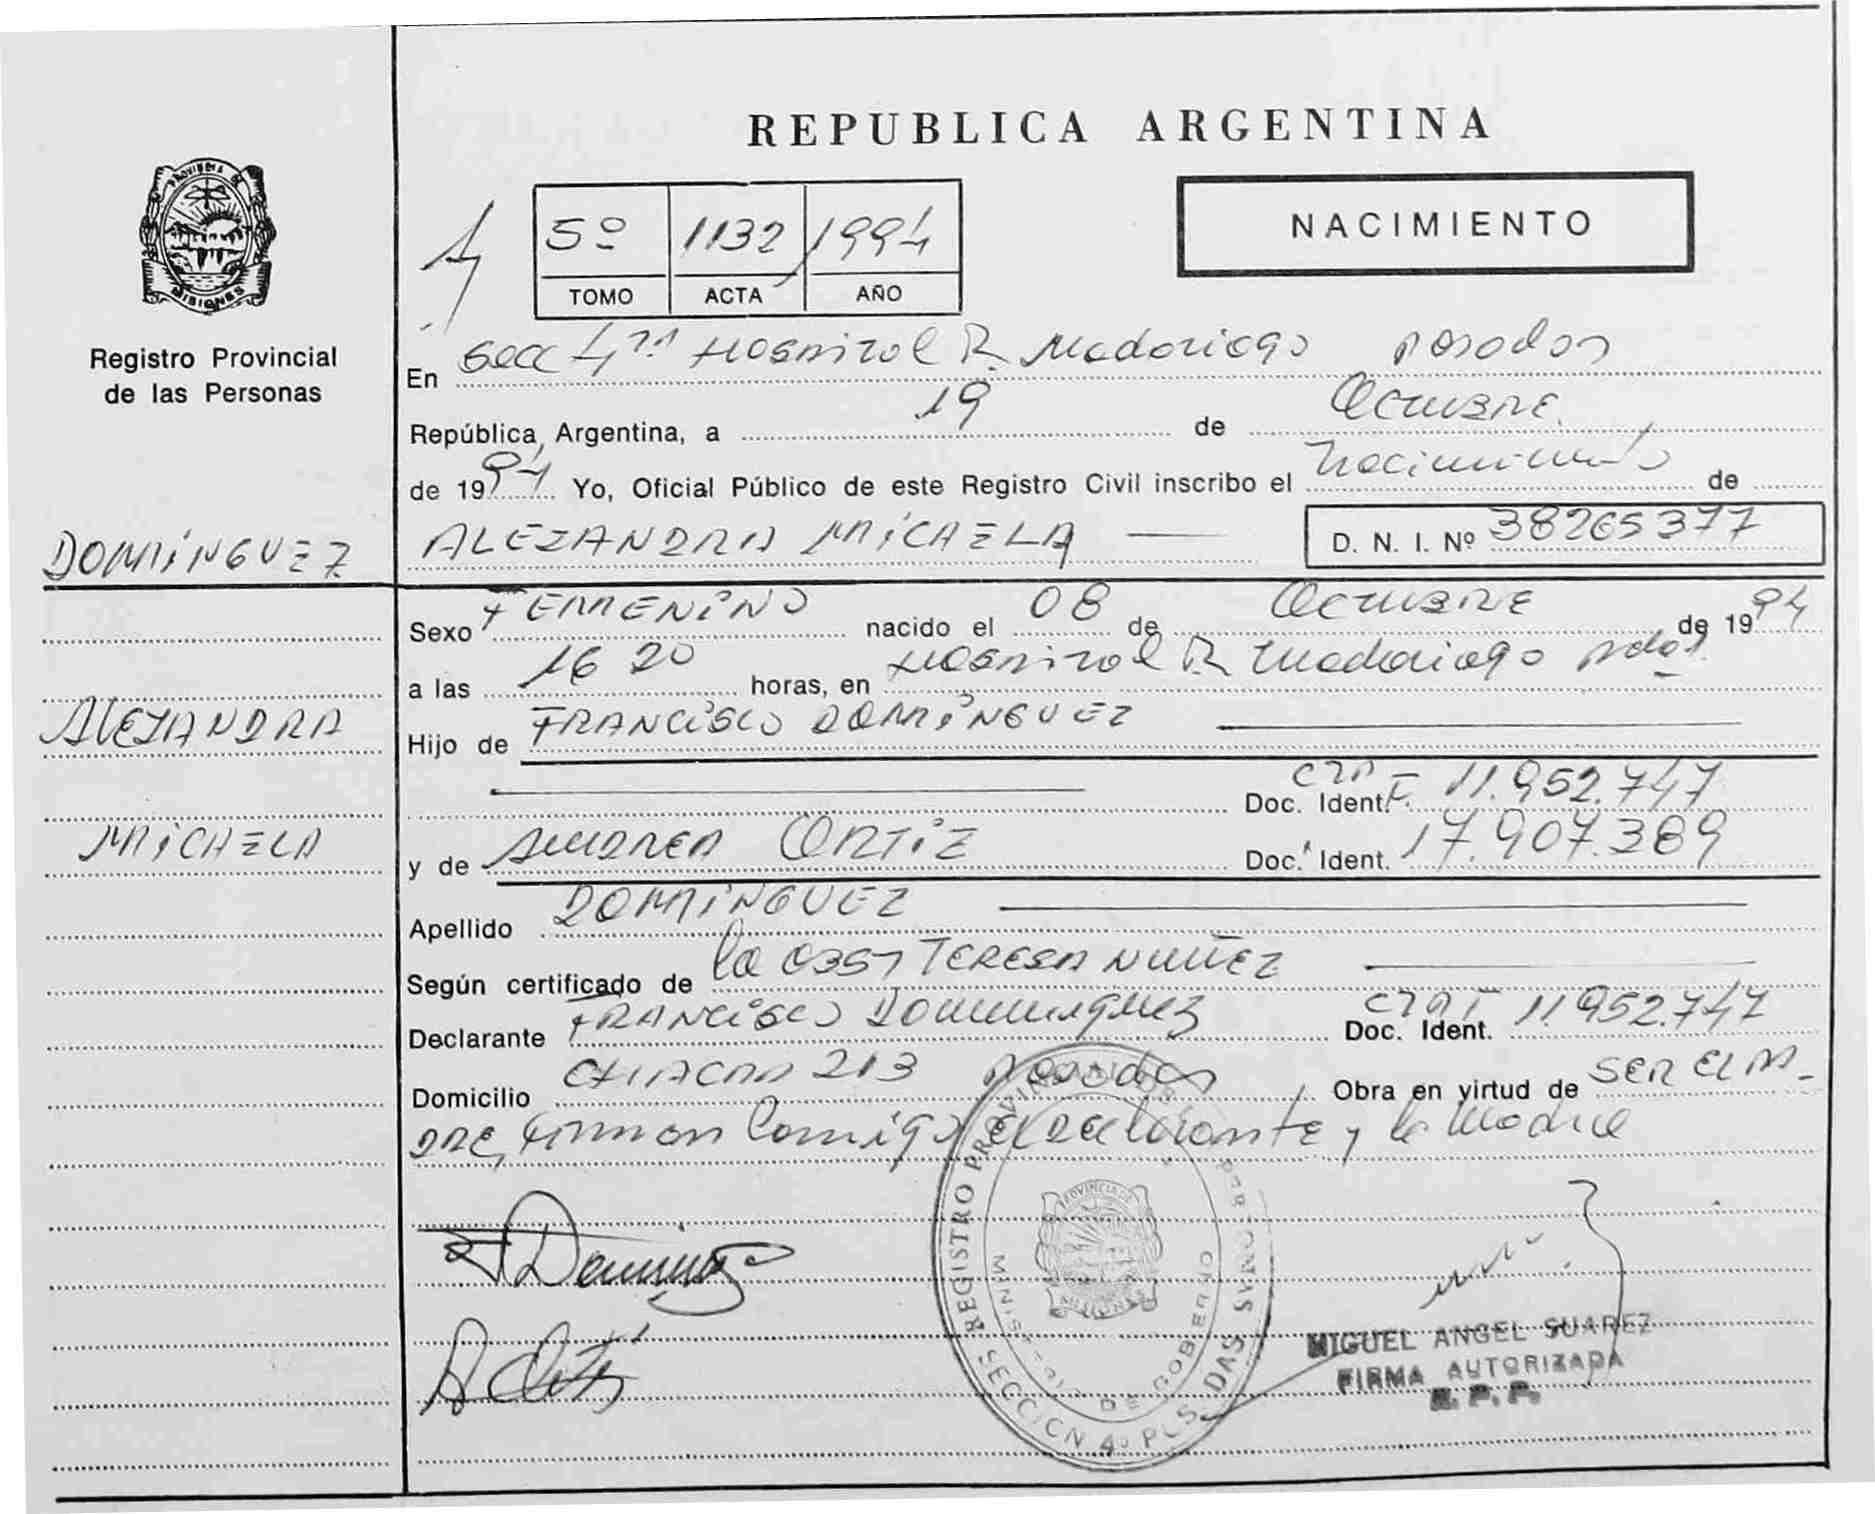 REPUBLICA ARGENTINA
PROVINCIA DE
MISIONES
Registro Provincial
de las Personas
5º 1132 1994
TOMO ACTA AÑO
NACIMIENTO
En Secc 4ta Hospital R. Madariaga Posadas
República Argentina, a 19 de Octubre
de 1994 Yo, Oficial Público de este Registro Civil inscribo el Nacimiento de
DOMíNGUEZ ALEJANDRA MiCAELA D. N. I. Nº 38265377
Sexo FEMENiNO nacido el 08 de Octubre de 1994
a las 16 20 horas, en Hospital R. Madariaga pdas.
ALEJANDRA Hijo de FRANCiSCO DOMíNGUEZ
Doc. Ident. 11.952.747
MiCAELA y de ANDREA ORTiZ Doc. Ident. 17.907.389
Apellido DOMíNGUEZ
Según certificado de la OBST TERESA NUÑEZ
Declarante FRANCiSCO Dominguez Doc. Ident. 11.952.747
Domicilio CHACRA 213 Posadas Obra en virtud de SER EL PA-
DRE, firman conmigo el declarante y la Madre
REGISTRO PROVINCIAL DE LAS PERSONAS
MINISTERIO DE GOBIERNO
PROVINCIA DE
MISIONES
SECCION 4º POSADAS
MIGUEL ANGEL SUAREZ
FIRMA AUTORIZADA
R. P. P.